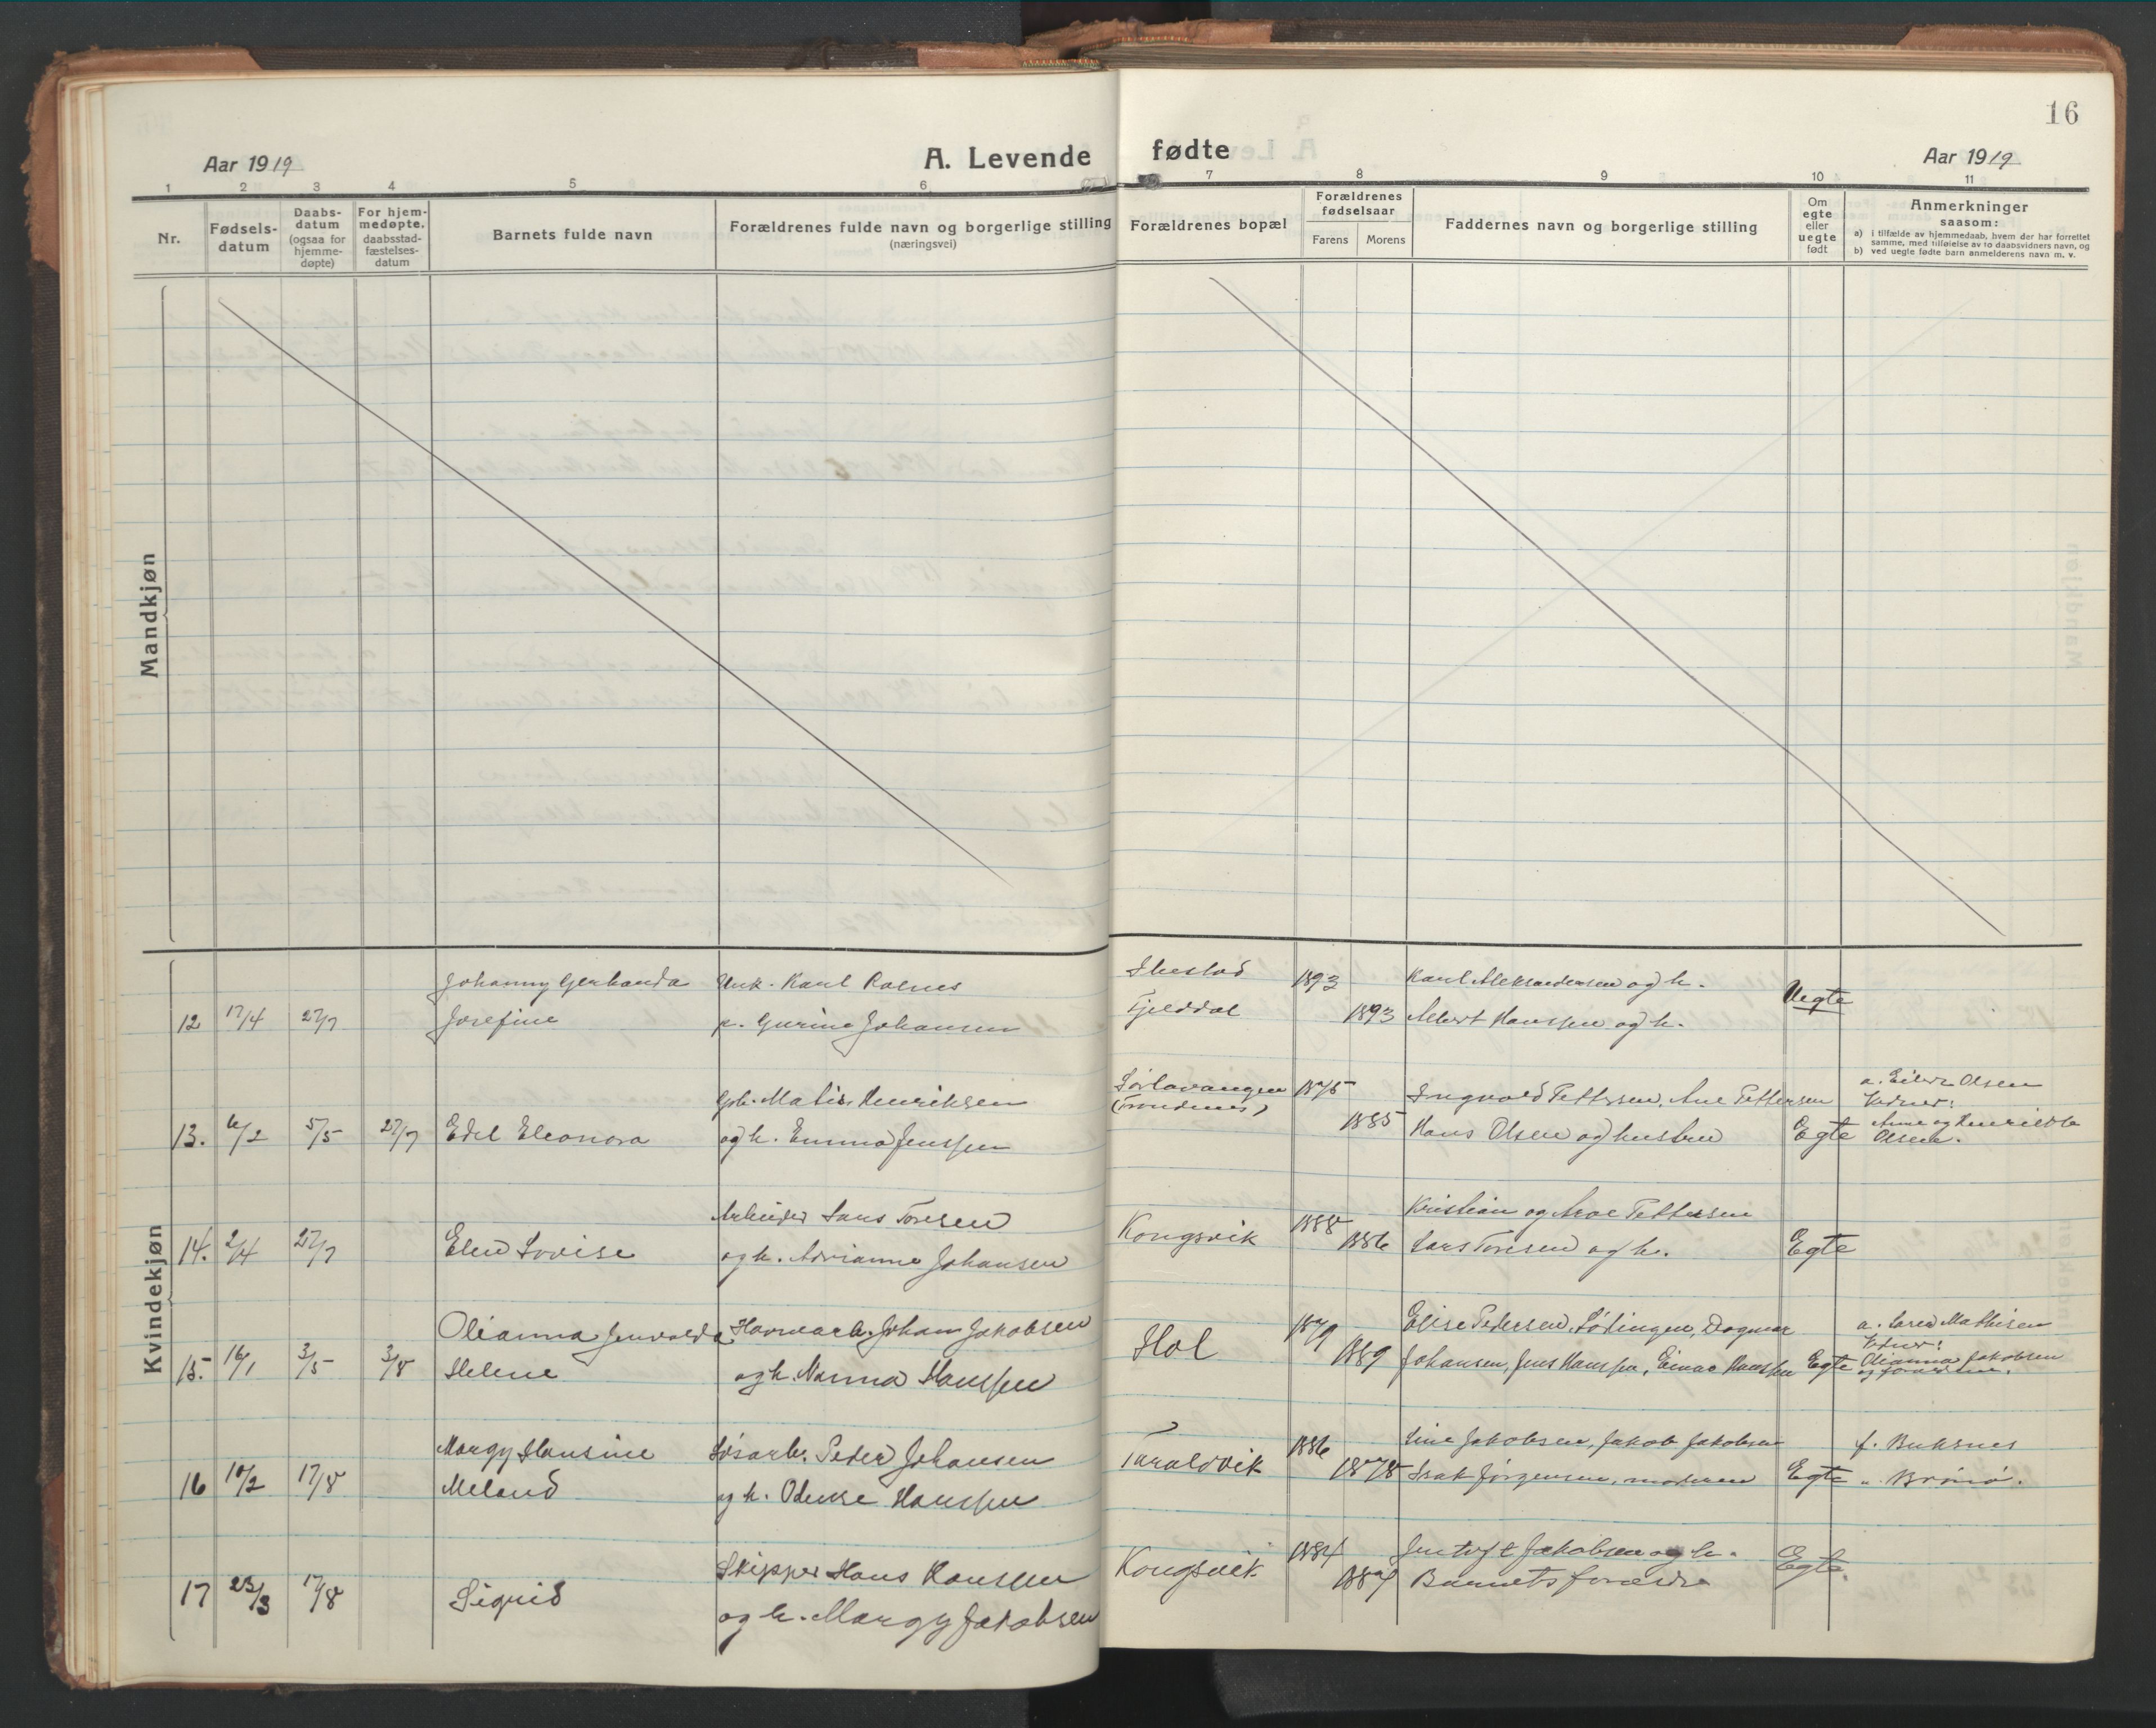 16
Aar 1919
A. Levende fødte
Aar 1919
1 2 3 4 5 6 7 8 9 10 11
Nr.
Fødsels-
datum
Daabs-
datum
(ogsaa for
hjemme-
døpte)
For hjem-
medøpte,
daabsstad-
fæstelses-
datum
Barnets fulde navn
Forældrenes fulde navn og borgerlige stilling
(næringsvei)
Forældrenes bopæl
Forældrenes
fødselsaar
Farens Morens
Faddernes navn og borgerlige stilling
Om
egte
eller
uegte
født
Anmerkninger
saasom:
a) i tilfælde av hjemmedaab, hvem der har forrettet
samme, med tilføielse av to daabsvidners navn, og
b) ved uegte fødte barn anmelderens navn m. v.
Mandkjøn
Kvindekjøn
Johanny Gerhanda Unk. Karl 1893 Karl Aleksandersen og h.
12 17/4 27/7 Josefine p. Gurine Johansen Fjelddal 1893 Albert Hanssen og h. Uegte
Henriksen Sørlavangen 1875 Ingvald Pettersen, Ane Pettersen a. Olsen
(Trondenes) Vidner:
13. 6/2 5/5 27/7 Edel Eleonora og h. Emma Jenssen 1885 Hans Olsen og hustru Egte Anne og Henriette
Olsen.
Arbeider Lars Toresen Kongsvik 1888 Kristian og Pettersen
14. 2/4 27/7 Elen Lovise og h. Adrianna Johansen 1886 Lars Toresen og h. Egte
Olianna Jenvolda Havnearb. Johan Jakobsen Hol 1879 Elise Pedersen, Lødingen, Dagmar a. Mathisen
15. 16/1 3/5 3/8 Helene og h. Nanna Hanssen 1889 Johansen, Jens Hanssen, Einar Hanssen Egte Olianna Jakobsen
og
Margy Hansine Løsarb. Peder Johansen Taraldvik 1886 Line Jakobsen, Jakob Jakobsen f. Buksnes
16 10/2 17/8 Meland og h. Hanssen 1878 Isak Jørgensen, moderen Egte " Brønø.
Skipper Hans Hanssen Kongsvik 1884 Jentoft Jakobsen og h. Egte
17 23/3 17/8 Sigrid og h. Margy Jakobsen Barnets forældre